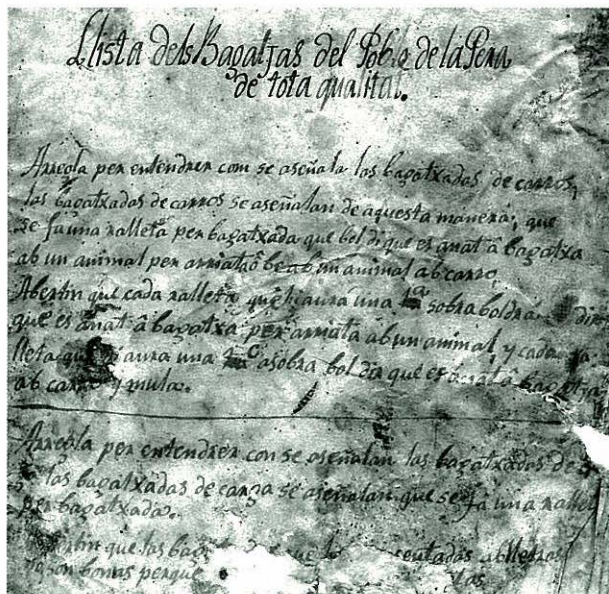 Llista dels Bagatjas del Poble de la Pera
de tota qualitat.
Arregla per entendrer com se aseñala las bagatxadas de carros,
las bagatxadas de carros se aseñalan de aquesta manera; que
se fa una ralleta per bagatxada que bol di que es anat â bagatxa
ab un animal per arriata ô be ab un animal ab carro,
Abertin que cada ralleta que hi aura una sobra boldra dir
que es anat â bagatxa per arriata ab un animal, y cada ra-
lleta que hi aura una asobra bol dir que es anat â bagatja
ab carro y mula.
Arregla per entendrer con se aseñalan las bagatxadas de
las bagatxadas de carga se aseñalan que se fa una ralleta
per bagatxada.
que las
son bonas perque las